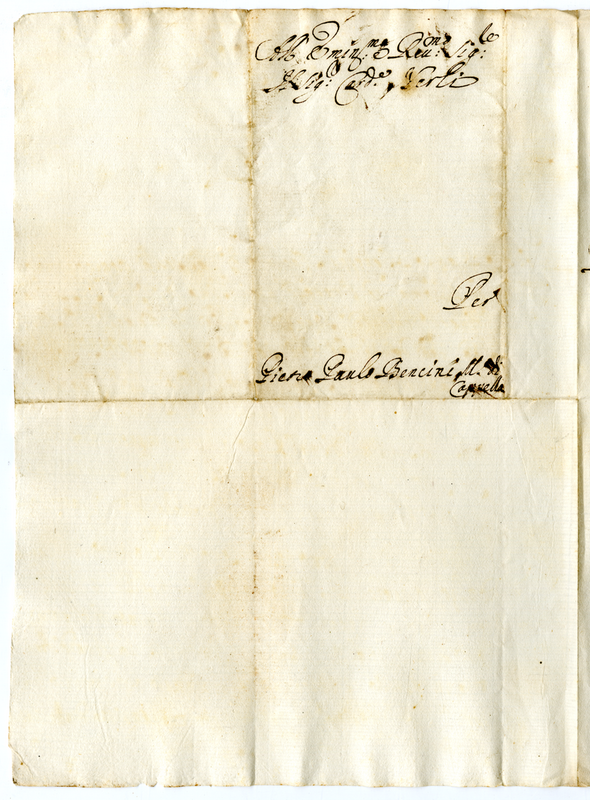 All' Emin.mo e Reu.mo Sig.le
Il Sig.r Card.e Verli
Per
Pietro Paulo Bencini M. di
Cappella